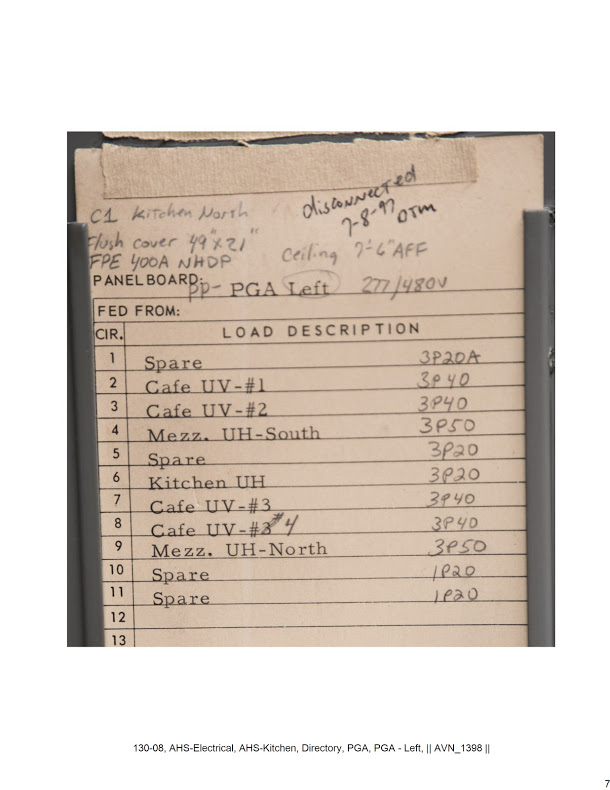 disconnected
7-8-97 DTM
C1 Kitchen North
Flush cover 49"x21"
FPE 400A NHDP Ceiling 7'-6" AFF
PANELBOARD: PP- PGA Left 277/480V
FED FROM:
CIR. LOAD DESCRIPTION
1 Spare 3P20A
2 Cafe UV-#1 3P40
3 Cafe UV-#2 3P40
4 Mezz. UH-South 3P50
5 Spare 3P20
6 Kitchen UH 3P20
7 Cafe UV-#3 3P40
8 Cafe UV-#3 #4 3P40
9 Mezz. UH-North 3P50
10 Spare 1P20
11 Spare 1P20
12
13
130-08, AHS-Electrical, AHS-Kitchen, Directory, PGA, PGA - Left, || AVN_1398 ||
7